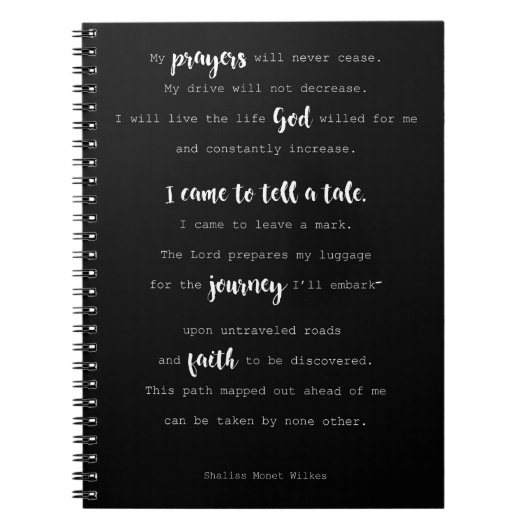 My prayers will never cease.
My drive will not decrease.
I will live the life God willed for me
and constantly increase.
I came to tell a tale.
I came to leave a mark.
The Lord prepares my luggage
for the journey I'll embark-
upon untraveled roads
and faith to be discovered.
This path mapped out ahead of me
can be taken by none other.
Shaliss Monet Wilkes